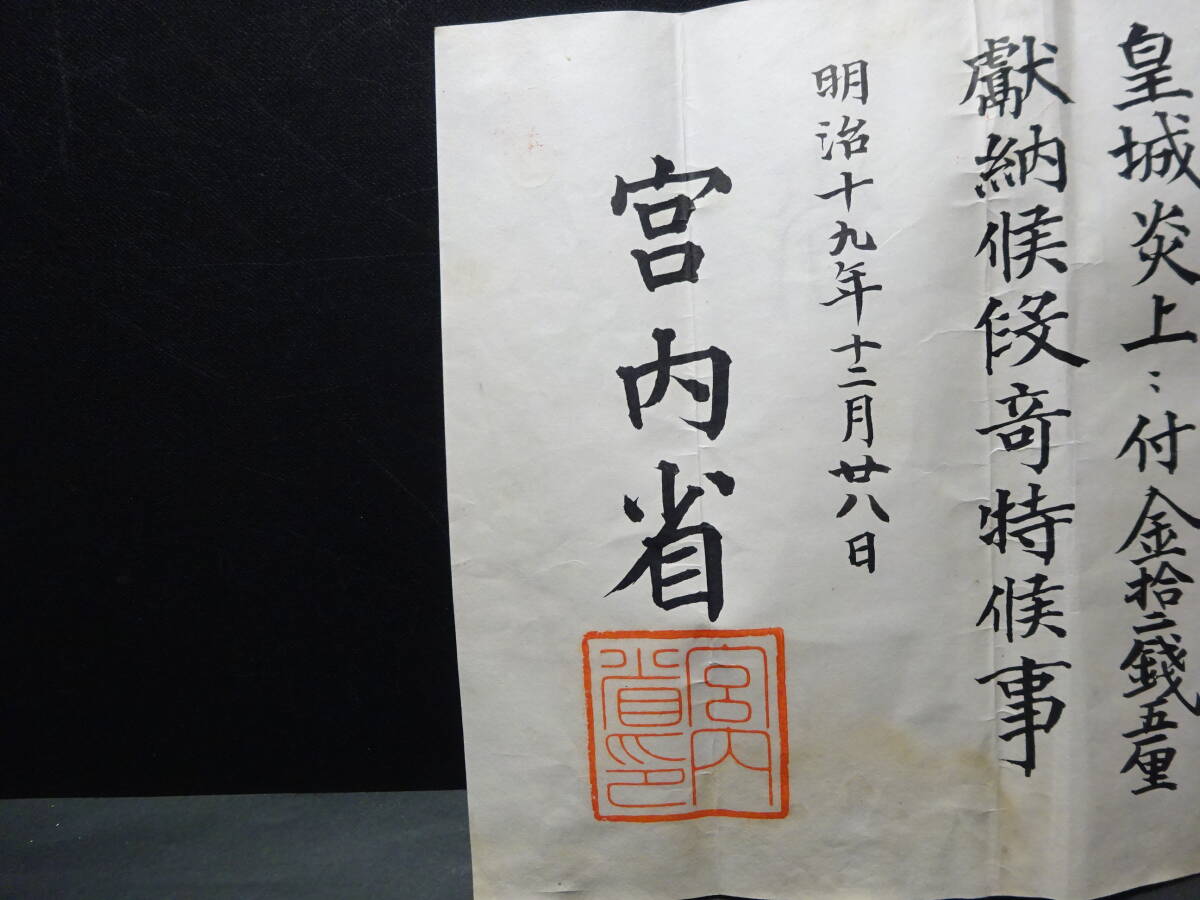 皇城炎上ニ付金拾二錢五厘
獻納候段奇特候事
明治十九年十二月廿八日
宮内省
宮内省印